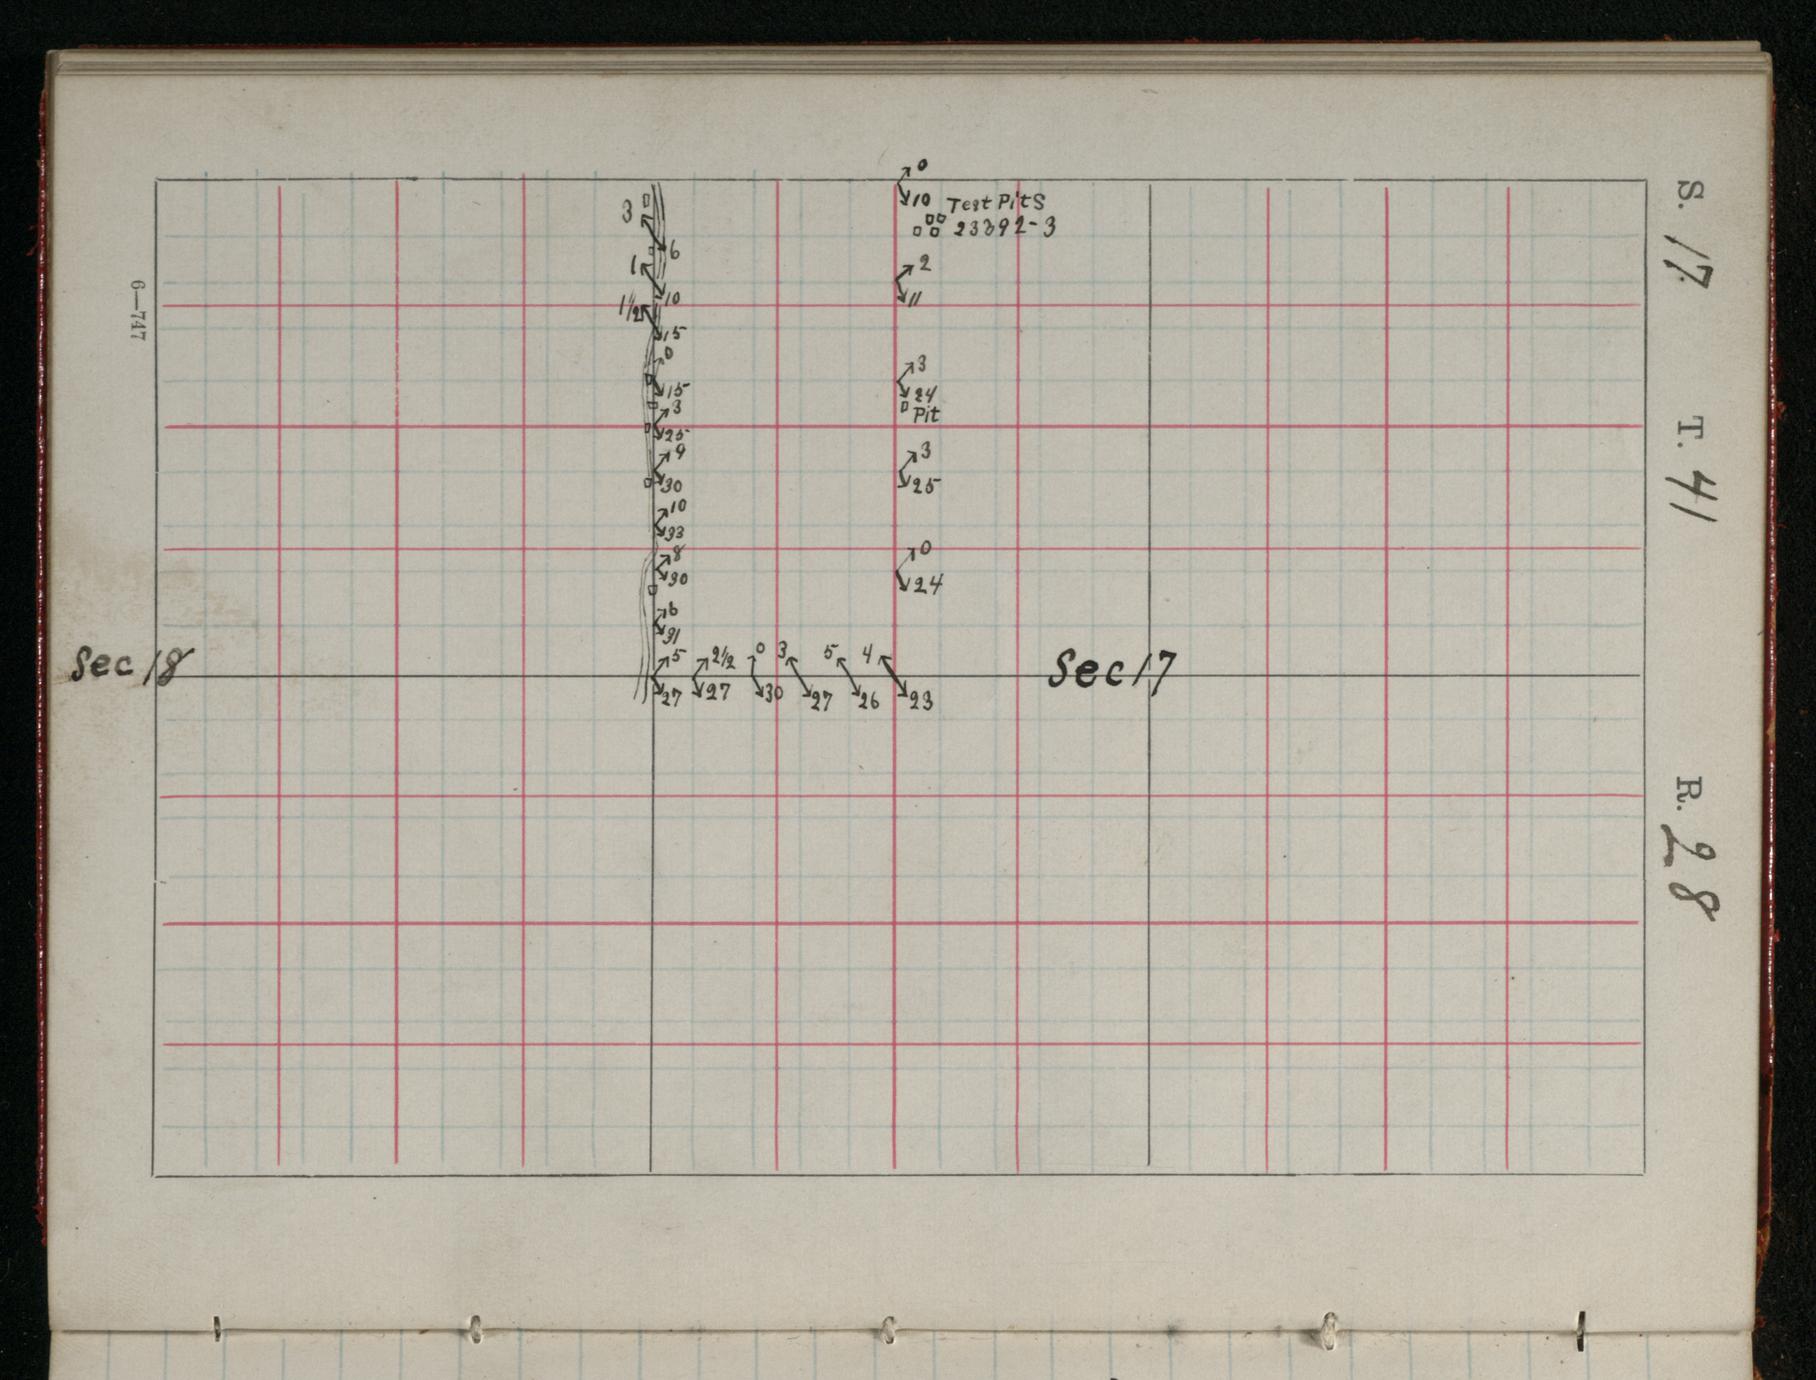 S. 17. T. 41 R. 28
6—747
0
10 Test Pits
23392-3
3
6
1
10
1½
15
0
15
3
25
9
30
10
33
8
30
6
31
2
11
3
24
Pit
3
25
0
24
Sec 18
5 2½ 0 3 5 4
27 27 30 27 26 23
Sec 17